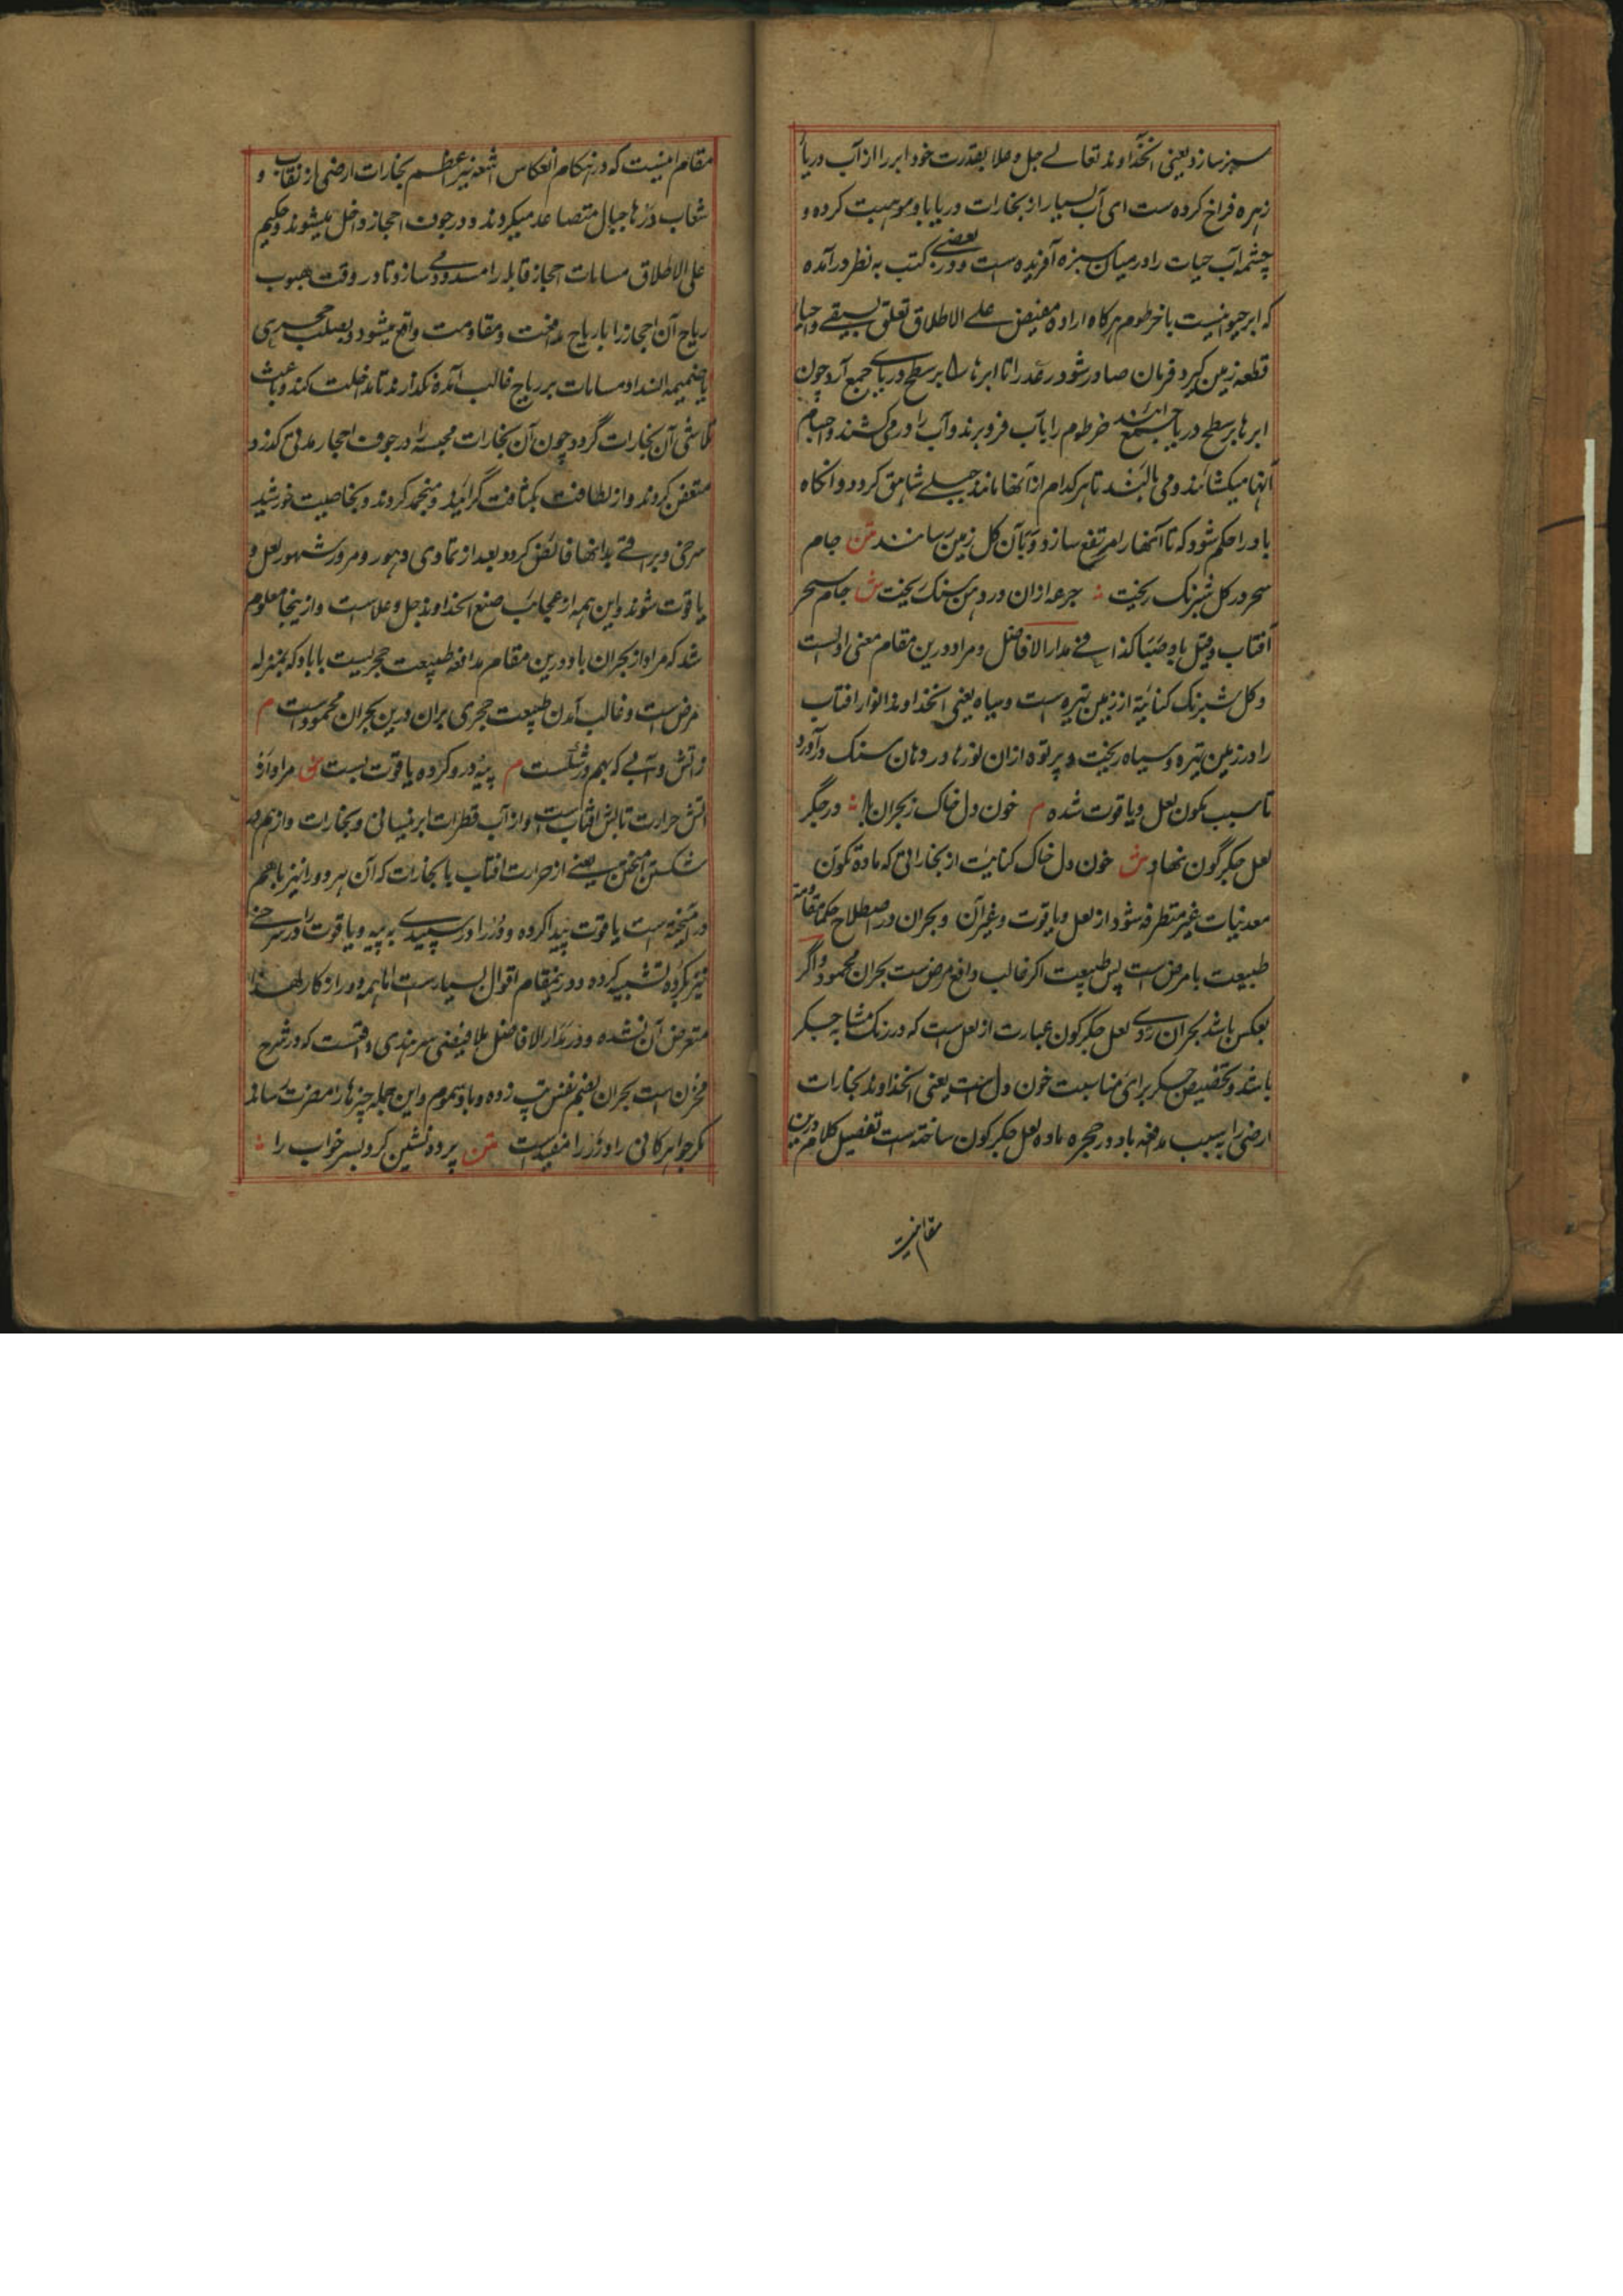 سبز سازد یعنی آنخداوند تعالے جل و علا بقدرت خود ابر را از آب دریا
زهره فراخ کرده ست ای آب بسیار از بخارات دریا با و موهبت کرده و
چشمه آب حیات را در میان سبزه آفریده ست و در بعضے کتب به نظر درآمده
که ابر حیوانیست با خرطوم هرکاه اراده مفیض علے الاطلاق تعلق بسقے و احیا
قطعه زمین گیرد فرمان صادر شود رعد را تا ابرها را بر سطح دریاے جمع آرد چون
ابرها بر سطح دریا جمع آیند خرطوم را بآب فرو برند و آب را درمی کشند و اجسام
آنها میکشایند و می بالند تا هر کدام از آنها مانند جبلے شاهق کردد و آنکاه
باد را حکم شود که تا آنها را مرتفع سازد و بآن کل زمین رسانند متن جام
سحر در کل شبرنک ریخت ؞ جرعه ازان در دهن سنک ریخت ش جام سحر
آفتاب و قیل باد صبا کذا فے مدار الافاضل و مراد درین مقام معنی اولست
و کل شبرنک کنایة از زمین تیره ست و سیاه یعنی آنخداوند انوار افتاب
را در زمین تیره و سیاه ریخت و پرتوه ازان نورها در دهان سنک درآورد
تا سبب تکون لعل و یاقوت شده م خون دل خاک ز بحران باد ؞ در جگر
لعل جگرگون نهاد ش خون دل خاک کنایت از بخاراتی که ماده تکون
معدنیات غیر متطرقه شود از لعل و یاقوت و غیر آن و بحران در اصطلاح حکما مقاومة
طبیعت با مرض ست پس طبیعت اکر غالب و دافع مرض ست بحران محمود و اگر
بعکس باشد بحران ردے لعل جگرکون عبارت از لعل ست که در رنک مشابه جسکر
باشد و تخصیص جسکر برای مناسبت خون دل ست یعنی آنخداوند بخارات
ارضی را به سبب مدافعه باد در حجره ماده لعل جکرکون ساخته ست تفصیل کلام درین
مقام اینست
مقام اینست که در هنکام انعکاس اشعه نیر اعظم بخارات ارضی از نقاب و
شعاب درّها جبال متصاعد میکردند و در جوف احجار داخل میشوند و حکیم
علی الاطلاق مسامات احجار قابله را مسدود مے سازد تا در وقت هبوب
ریاح آن احجار را با ریاح مدافعت و مقاومت واقع میشود و بصلب حجری
با ضمیمه انسداد مسامات بر ریاح غالب آمده نکذارند تا مداخلت کند و باعث
تلاشی آن بخارات گردد چون آن بخارات محبسه را در جوف احجار مدتی کذرد
متعفن کردند و از لطافت بکثافت گرایند و منجمد کردند و بخاصیت خورشید
سرخی و براقے بدانها فائض کردد بعد از تمادی دهور و مرور شهور لعل و
یاقوت شوند و این همه از عجایب صنع آنخداوند جل و علاست و ازینجا معلوم
شد که مراد از بحران باد درین مقام مدافعه طبیعت حجریست با باد که بمنزله
مرض ست و غالب آمدن طبیعت حجری بران درین بحران محمود است م
و آتش و آبے که بهم در شکست م پیه در و گرده یاقوت بست ش مراد از
آتش حرارت تابش افتاب ست و از آب قطرات ابر نیسانی و بخارات و از بهم در
شکستن آمیختن یعنے از حرارت افتاب با بخارات که آن هر دو را نیز باهم
درآمیخته ست یاقوت پیدا کرده و درّ را در سپیدے به پیه و یاقوت را در سرخے
نیز بگرده تشبیه کرده و درینمقام اقوال بسیارست اما همه دور از کار لهذا
متعرض آن نشده و در مدار الافاضل ملا فیضی سرهندی واقعست که در شرح
مخزن است بحران بضم نفس تپ زده و باد سموم و این جمله چیزها را مضرت رساند
مکر جواهر کانی را و زر را مفیدست متن پرده نشین کرد سر خواب را ؞